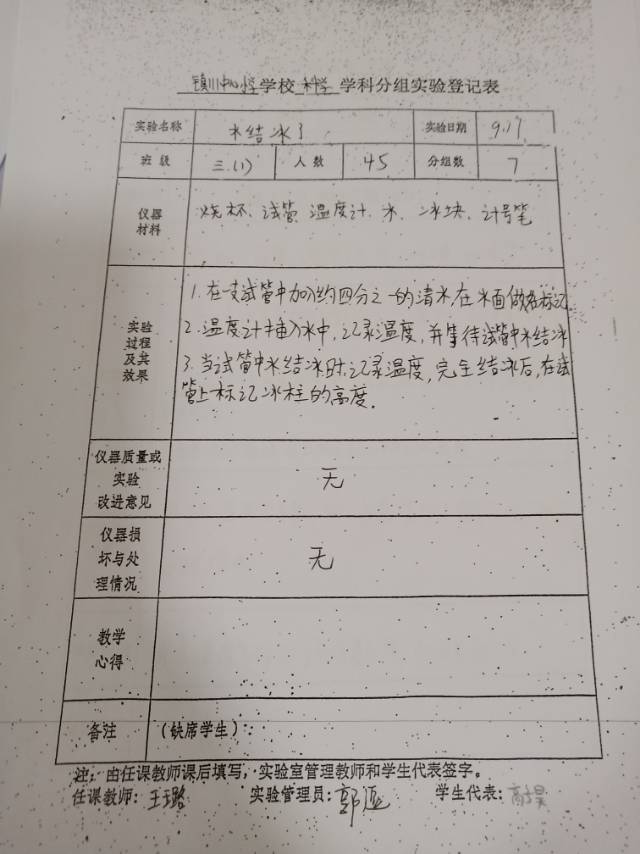 镇川中心小学学校 科学 学科分组实验登记表
实验名称 水结冰了 实验日期 9.17
班 级 三.(1) 人 数 45 分组数 7
仪器
材料
烧杯、试管、温度计、水、冰块、计号笔
实验
过程
及其
效果
1.在一支试管中加入约四分之一的清水,在水面做好标记
2.温度计插入水中,记录温度,并等待试管中水结冰
3.当试管中水结冰时,记录温度,完全结冰后,在试
管上标记冰柱的高度.
仪器质量或
实验
改进意见
无
仪器损
坏与处
理情况
无
教学
心得
备注 (缺席学生):
注:由任课教师课后填写,实验室管理教师和学生代表签字。
任课教师:王璐 实验管理员:郭 学生代表: